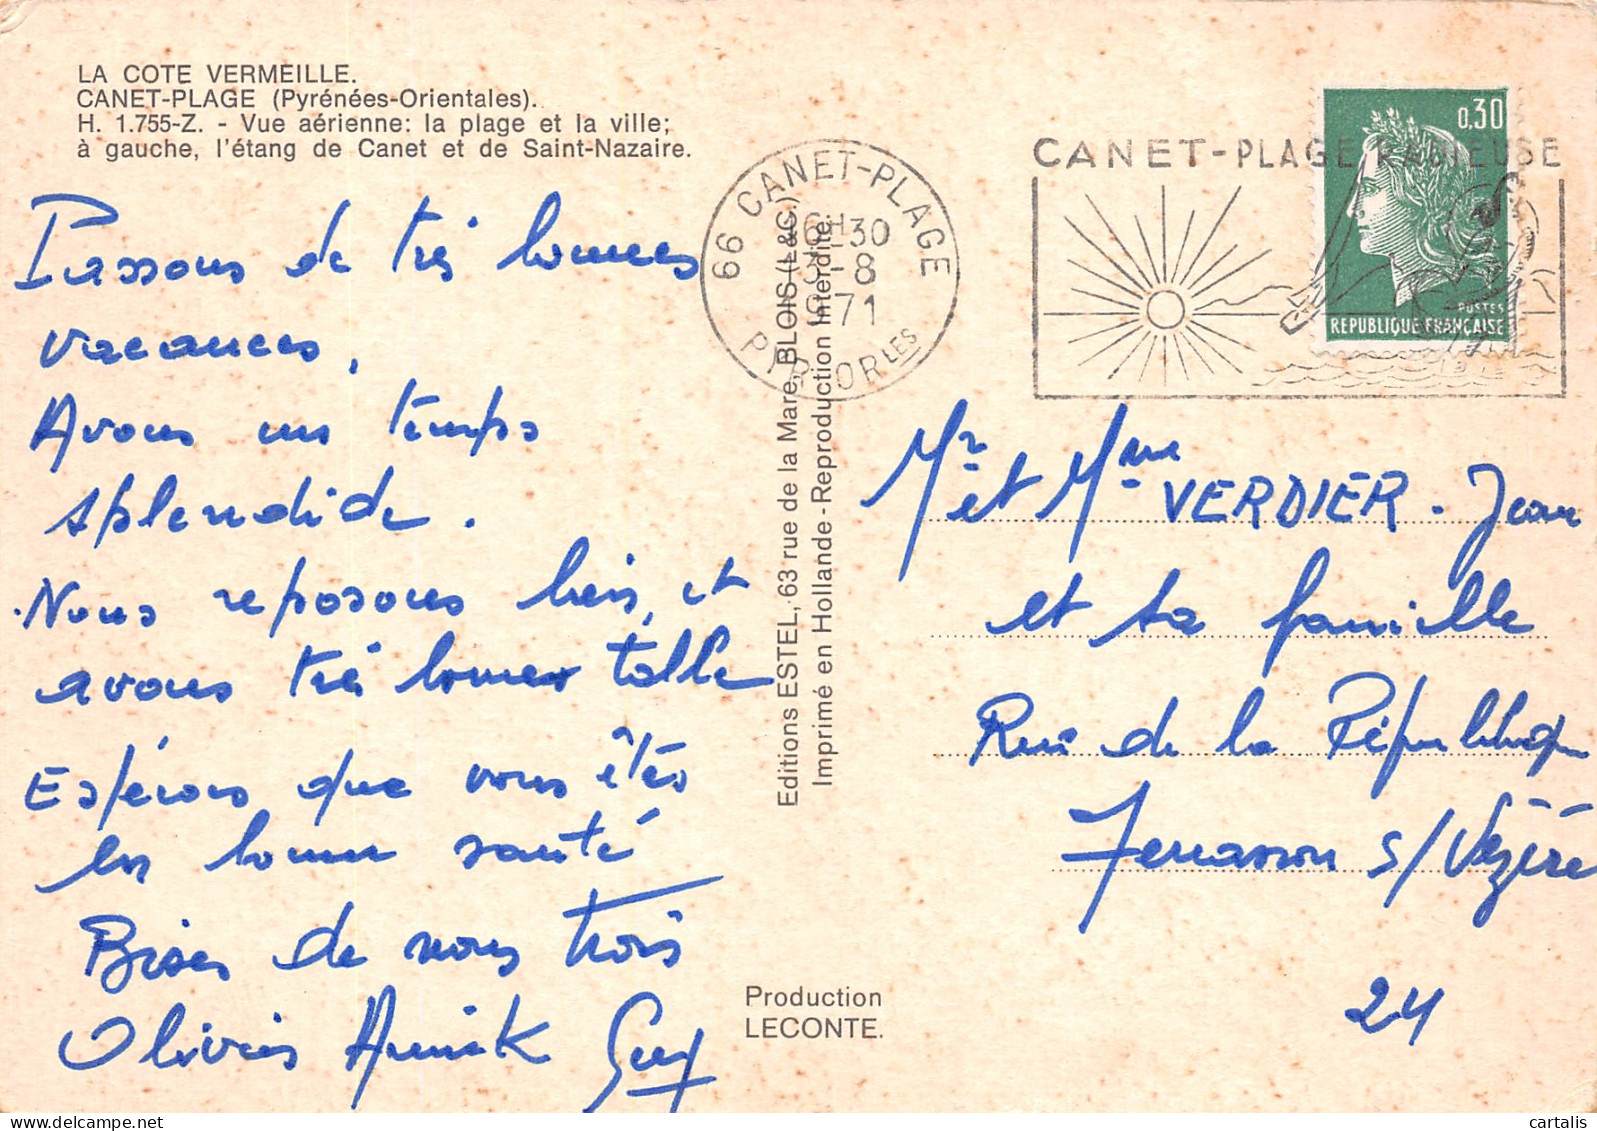 LA COTE VERMEILLE.
CANET-PLAGE (Pyrénées-Orientales).
H. 1.755-Z. - Vue aérienne: la plage et la ville;
à gauche, l'étang de Canet et de Saint-Nazaire.
Passons de très bonnes
vacances,
Avons un temps
splendide.
Nous reposons bien, et
avons très bonnes table
Espérons que vous êtes
en bonne santé
Bises de nous trois
Olivier Annick Guy
66 CANET-PLAGE
16H30
3-8
1971
PYR-ORLES
Editions ESTEL, 63 rue de la Mare, BLOIS (L&G.)
Imprimé en Hollande-Reproduction Interdite.
Production
LECONTE.
CANET-PLAGE RADIEUSE
0,30
POSTES
REPUBLIQUE FRANÇAISE
Mr et Mme VERDIER. Jean
et sa famille
Rue de la République
Terrasson s/Vézère
24
cartalis